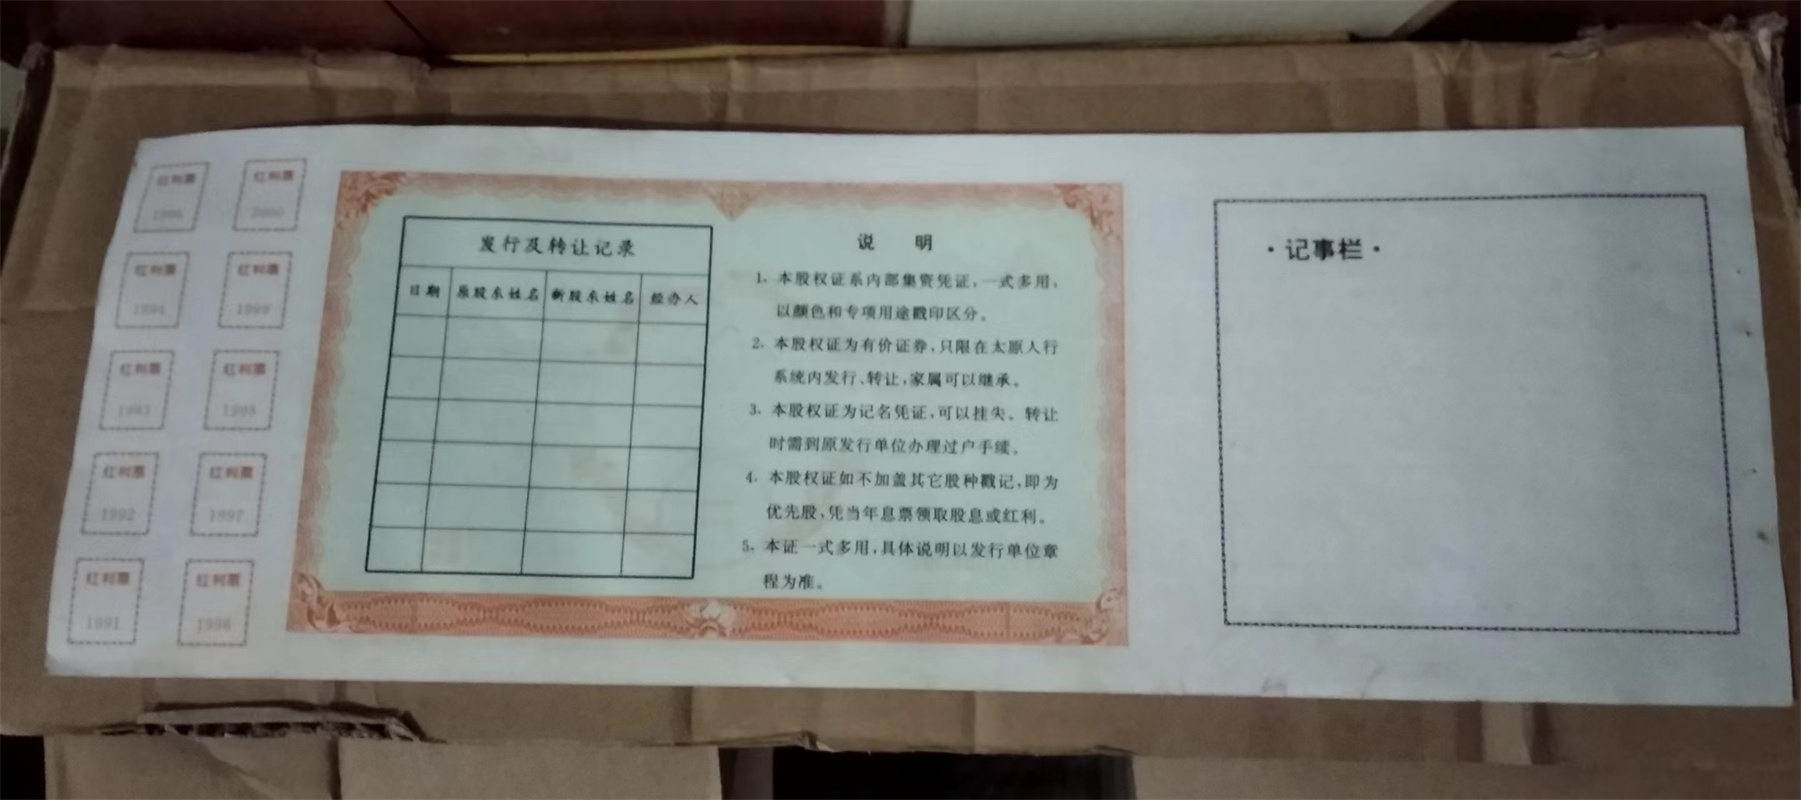 红利票
1995
红利票
2000
红利票
1994
红利票
1999
红利票
1993
红利票
1998
红利票
1992
红利票
1997
红利票
1991
红利票
1996
发行及转让记录
日期 原股东姓名 新股东姓名 经办人
说 明
1. 本股权证系内部集资凭证，一式多用，
以颜色和专项用途戳印区分。
2. 本股权证为有价证券，只限在太原人行
系统内发行、转让，家属可以继承。
3. 本股权证为记名凭证，可以挂失、转让
时需到原发行单位办理过户手续。
4. 本股权证如不加盖其它股种戳记，即为
优先股，凭当年息票领取股息或红利。
5. 本证一式多用，具体说明以发行单位章
程为准。
·记事栏·